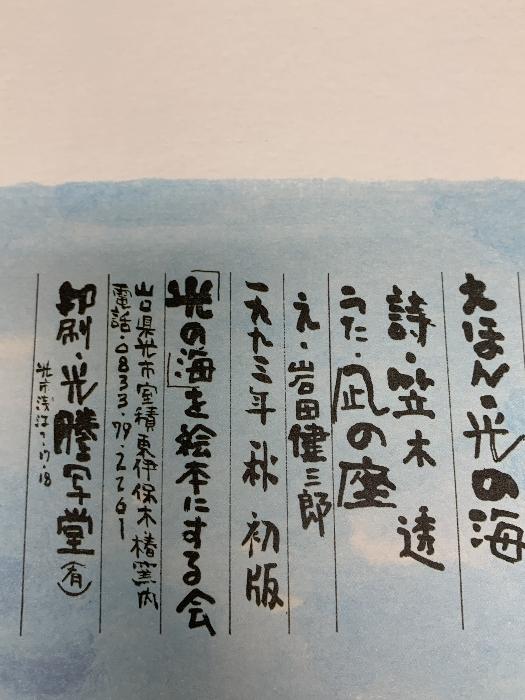 えほん・光の海
詩・笠木 透
うた・凪の座
え・岩田健三郎
一九九三年 秋 初版
「光の海」を絵本にする会
山口県光市室積東伊保木椿窯内
電話・0833・79・2261
印刷・光謄写堂(有)
光市浅江7・17・18